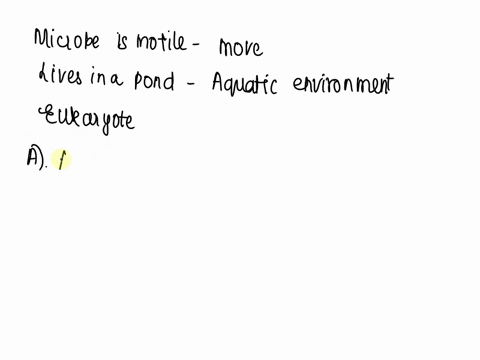 Microbe is motile - move
Lives in a pond - Aquatic environment
Eukaryote
A).